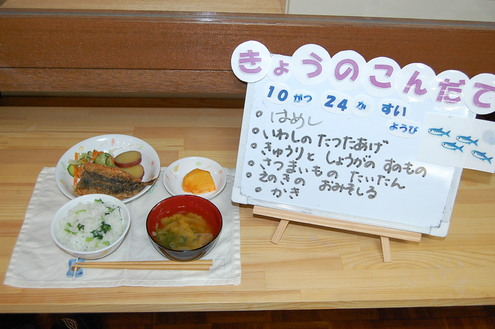 きょうのこんだて
10 がつ 24 か すい ようび
・なめし
・いわしの たつたあげ
・きゅうりと しょうがの すのもの
・さつまいもの たいたん
・えのきの おみそしる
・かき